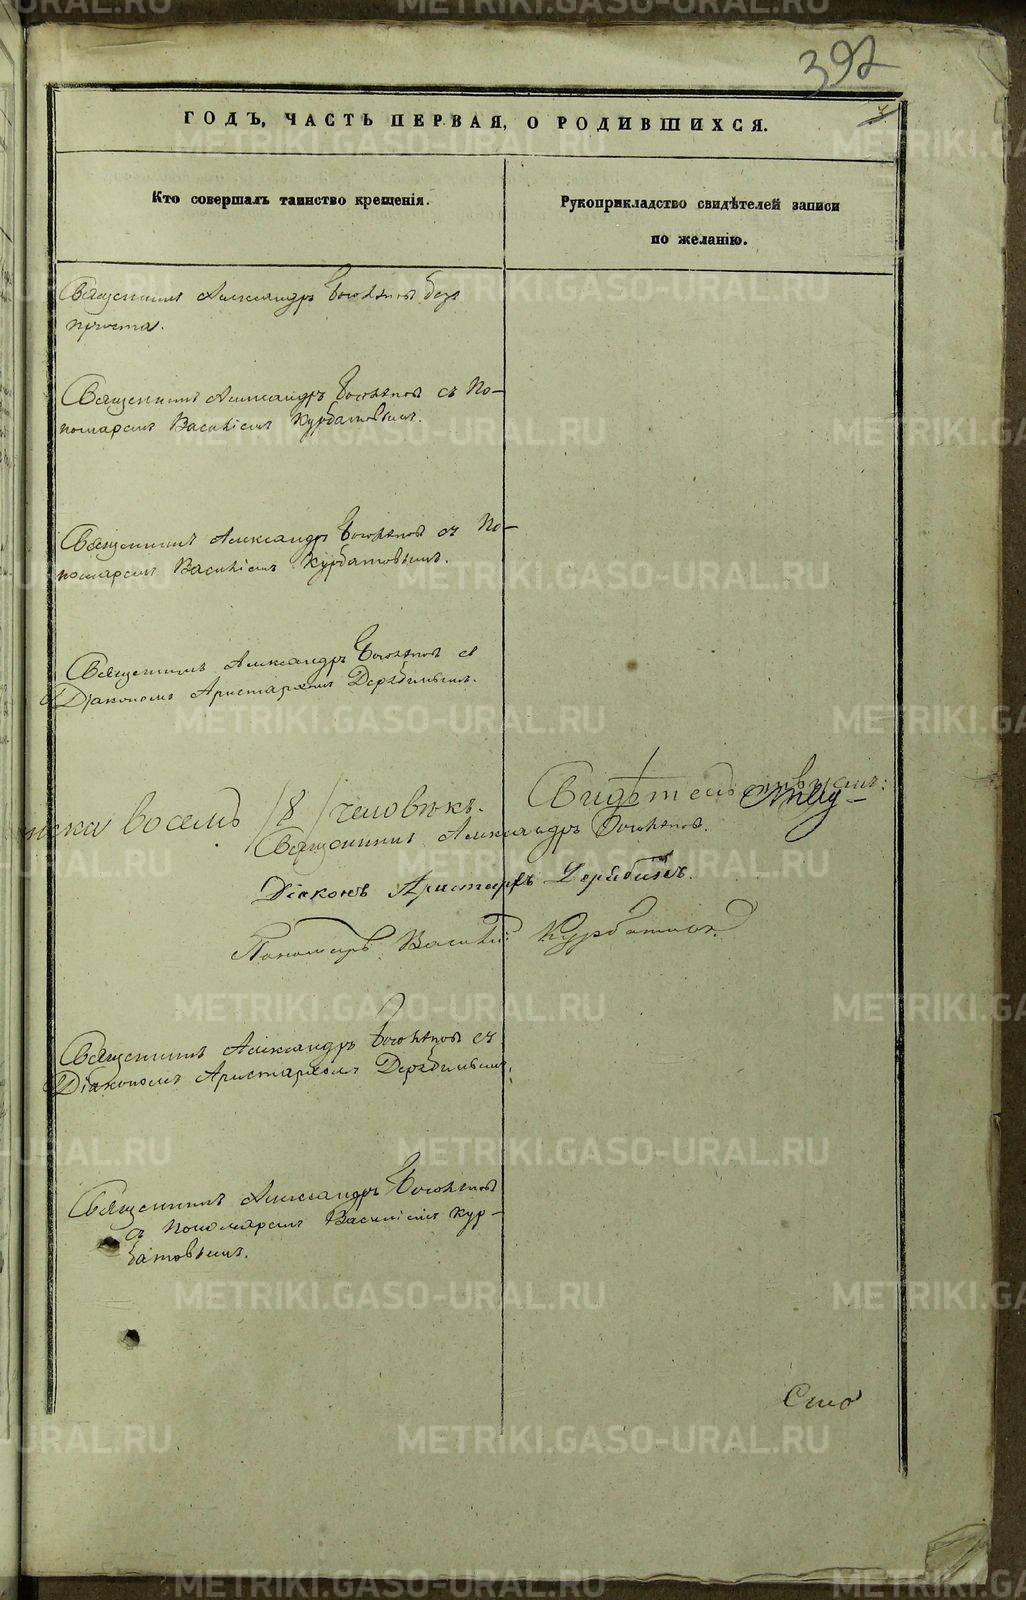 392
ГОДЪ, ЧАСТЬ ПЕРВАЯ, О РОДИВШИХСЯ.
Кто совершалъ таинство крещенія.
Рукоприкладство свидѣтелей записи
по желанію.
Священникъ Александръ безъ
причта.
Священникъ Александръ съ По-
номаремъ Василіемъ Курбатовымъ.
Священникъ Александръ съ По-
номаремъ Василіемъ Курбатовымъ.
Священникъ Александръ съ
Діакономъ Аристархомъ Дерябинымъ.
восемь /8/ человѣкъ. Свидѣтельствуемъ:
Священникъ Александръ
Діаконъ Аристархъ Дерябинъ.
Пономарь Василій Курбатовъ.
Священникъ Александръ съ
Діакономъ Аристархомъ Дерябинымъ.
Священникъ Александръ
съ Пономаремъ Василіемъ Кур-
батовымъ.
Сто
METRIKI.GASO-URAL.RU